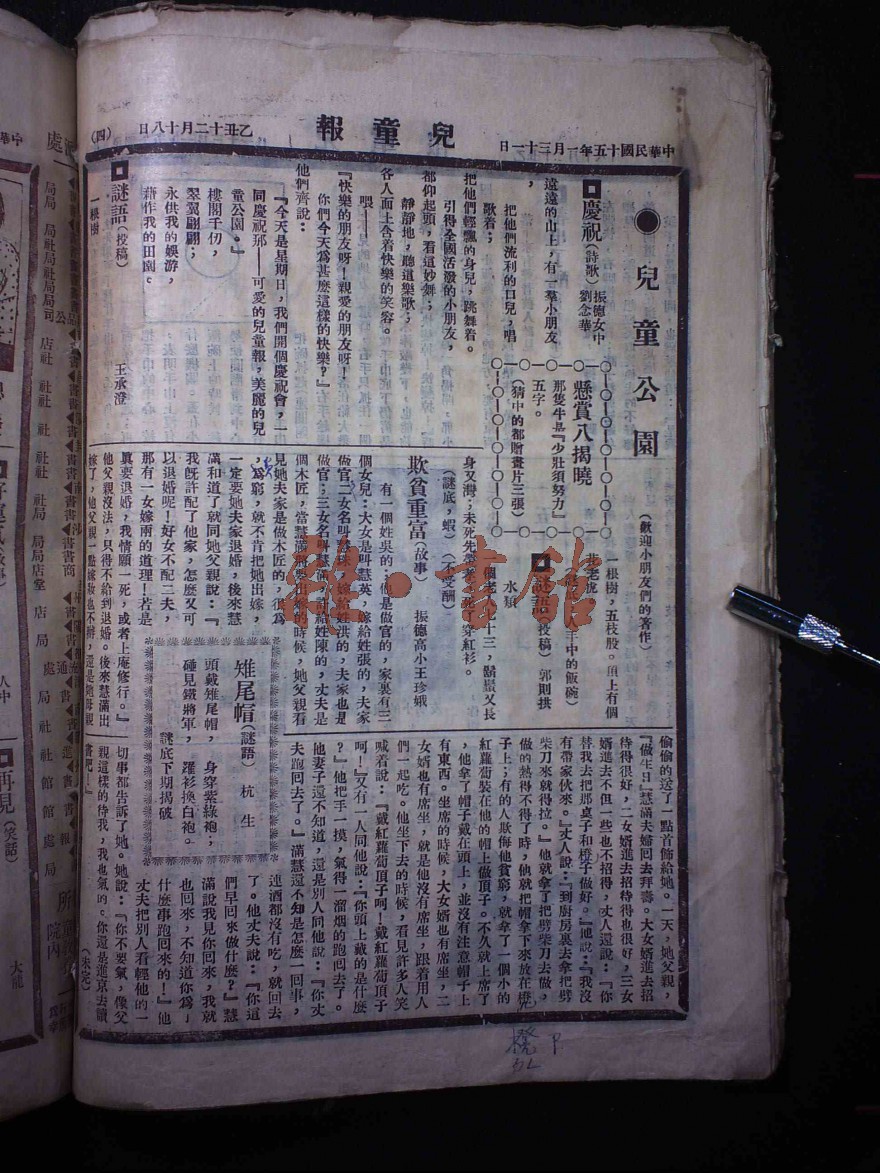 中華民國十五年一月三十一日
兒童報
乙丑十二月十八日
(四)
● 兒童公園
(歡迎小朋友們的著作)
慶祝(詩歌) 振德女中 劉念華
遠遠的山上，有一羣小朋友，
把他們流利的口兒，唱歌着；
把他們輕飄的身兒，跳舞着。
引得全國活潑的小朋友，
都仰起頭，看這妙舞；
靜靜地，聽這樂歌；
各人面上含着快樂的笑容。
喂——
『快樂的朋友呀！親愛的朋友呀！
你們今天為甚麼這樣的快樂？』
他們齊說：
『今天是星期日，我們開個慶祝會，一
同慶祝那——可愛的兒童報，美麗的兒
童公園。』
樓閣千仞，
翠翼翩翩；
永供我的娛游，
藉作我的田園。
謎語(投稿) 王承澄
一根樹
懸賞八揭曉
那隻牛是『少壯須努力』
五字。
(猜中的都贈畫片三張)
一根樹，五枝股。頂上有個
老虎
人手中的飯碗)
謎語(投稿) 郭則拱
水類
老九十三，鬍鬚又長
身又灣；未死先帶孝，死後穿紅衫。
(謎底，蝦) (不受酬)
欺貧重富(故事) 振德高小王珍娥
有一個姓吳的；他是做官的，家裏有三
個女兒：大女是叫慧英，嫁給姓張的，夫家
做官；二女名叫慧珠，嫁給姓洪的，夫家也是
做官；三女名叫慧滿，許給姓陳的，丈夫是
個木匠，當慧滿將要出嫁的時候，她父親看
見她夫家是做木匠的，很為
，為窮，就不肯把她出嫁，
一定要她夫家退婚，後來慧
滿知道了就同她父親說：『
我旣許配了他家，怎麼又可
以退婚呢！好女不配二夫，
那有一女嫁兩的道理！若是
眞要退婚，我情願一死，或者上庵修行。』
他父親沒法，只得不給到退婚。後來慧滿出
嫁了，他父親一點嫁妝也不辦，還是她母親
偷偷的送了一點首飾給她。一天，她父親，
『做生日』慧滿夫婦回去拜壽。大女婿進去招
待得很好，二女婿進去招待得也很好，三女
婿進去不但一些也不招待，丈人還說：『你
替我去把那桌子和櫈子做好。』他說：『我沒
有帶家伙來。』丈人說：『到廚房裏去拿把劈
柴刀來就得拉。』他就拿了把劈柴刀去做，
做的熱得不得了時，他就把帽拿下來放在櫈
子上；有的人欺侮他貧窮，就拿了一個小的
紅蘿蔔裝在他的帽上做頂子。不久就上席了
，他拿了帽子戴在頭上，並沒有注意帽子上
有東西。坐席的時候，大女婿也有席坐，二
女婿也有席坐，就是他沒有席坐，跟着用人
們一起吃。他坐下去的時候，看見許多人笑
喊着說：『戴紅蘿蔔頂子呵！戴紅蘿蔔頂子
呵！』又有一人同他說：『你頭上戴的是什麼
？』他把手一摸，氣得一溜烟的跑回去了。
他妻子還不知道，還是別人同他說：『你丈
夫跑回去了。』滿慧還不知是怎麼一回事，
連酒都沒有吃，就回去
了。他丈夫說：『你這
們早回來做什麼？』慧
滿說我見你回來，我就
也回來，不知道你為了
什麼事跑回來的！』他
丈夫把別人看輕他的一
切事都告訴了她。她說：『你不要氣，像父
親這樣的待我，我也氣的。你還是進京去讀
書吧！』
(未完)
雉尾帽(謎語) 杭生
頭戴雉尾帽， 身穿紫綠袍，
碰見鐵將軍， 羅衫換白袍。
謎底下期揭破
再見(笑話)
大龍